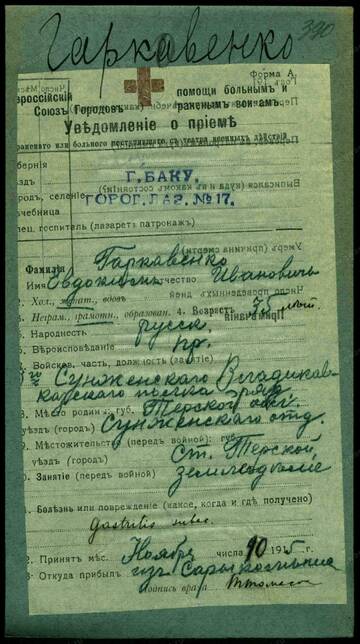 Гаркавенко
390
Форма А
Всероссійскій
помощи больнымъ и
Союзъ Городовъ
раненымъ воинамъ.
Увѣдомленіе о пріемѣ
раненаго или больного поступившаго съ театра военныхъ дѣйствій
Г. БАКУ.
ГОРОД. ЛАЗ. №17.
Городъ, селеніе
лечебница
спец. госпиталь (лазаретъ патронажъ)
Фамилія Гаркавенко
Имя Евдокимъ Отчество Ивановичъ
2. Хол., женат., вдовъ
3. Неграм., грамотн., образован. 4. Возрастъ 35
Народность русск.
Вѣроисповѣданіе пр.
Войсков. часть, должность (занятіе)
Сунженскаго Владикав-
казскаго полка ряд.
8. Мѣсто родины: губ. Терской обл.
уѣздъ (городъ) Сунженскаго отд.
9. Мѣстожительство (передъ войной): губ.
уѣздъ (городъ) ст. Терской,
10. Занятіе (передъ войной) земледѣліе
11. Болѣзнь или поврежденіе (какое, когда и гдѣ получено)
gastritis subac.
12. Принятъ мѣс. Ноября числа 10 1915 г.
13. Откуда прибылъ изъ Сарыкамыша
Подпись врача